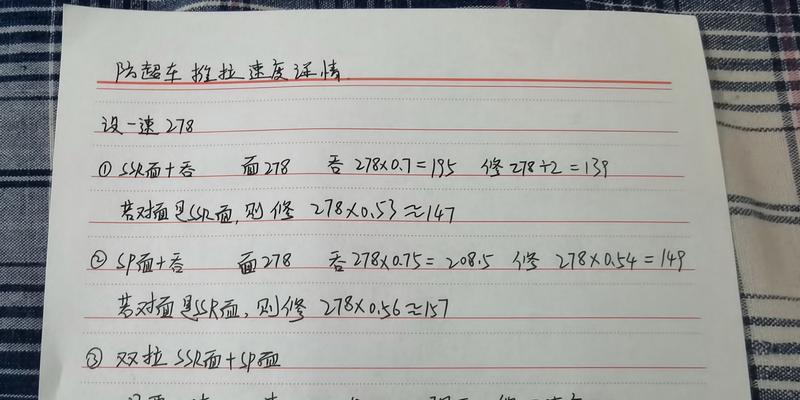 防超车推拉速度详情
设一速278
① SSR面+吞 面278 吞 278×0.7=195 修 278÷2=139
若对面是SSR面,则修 278×0.53≈147
② SP面+吞 面278 吞278×0.75=208.5 修 278×0.54=149
若对面是SSR面,则修 278×0.56≈157
③ 双拉 SSR面+SP面